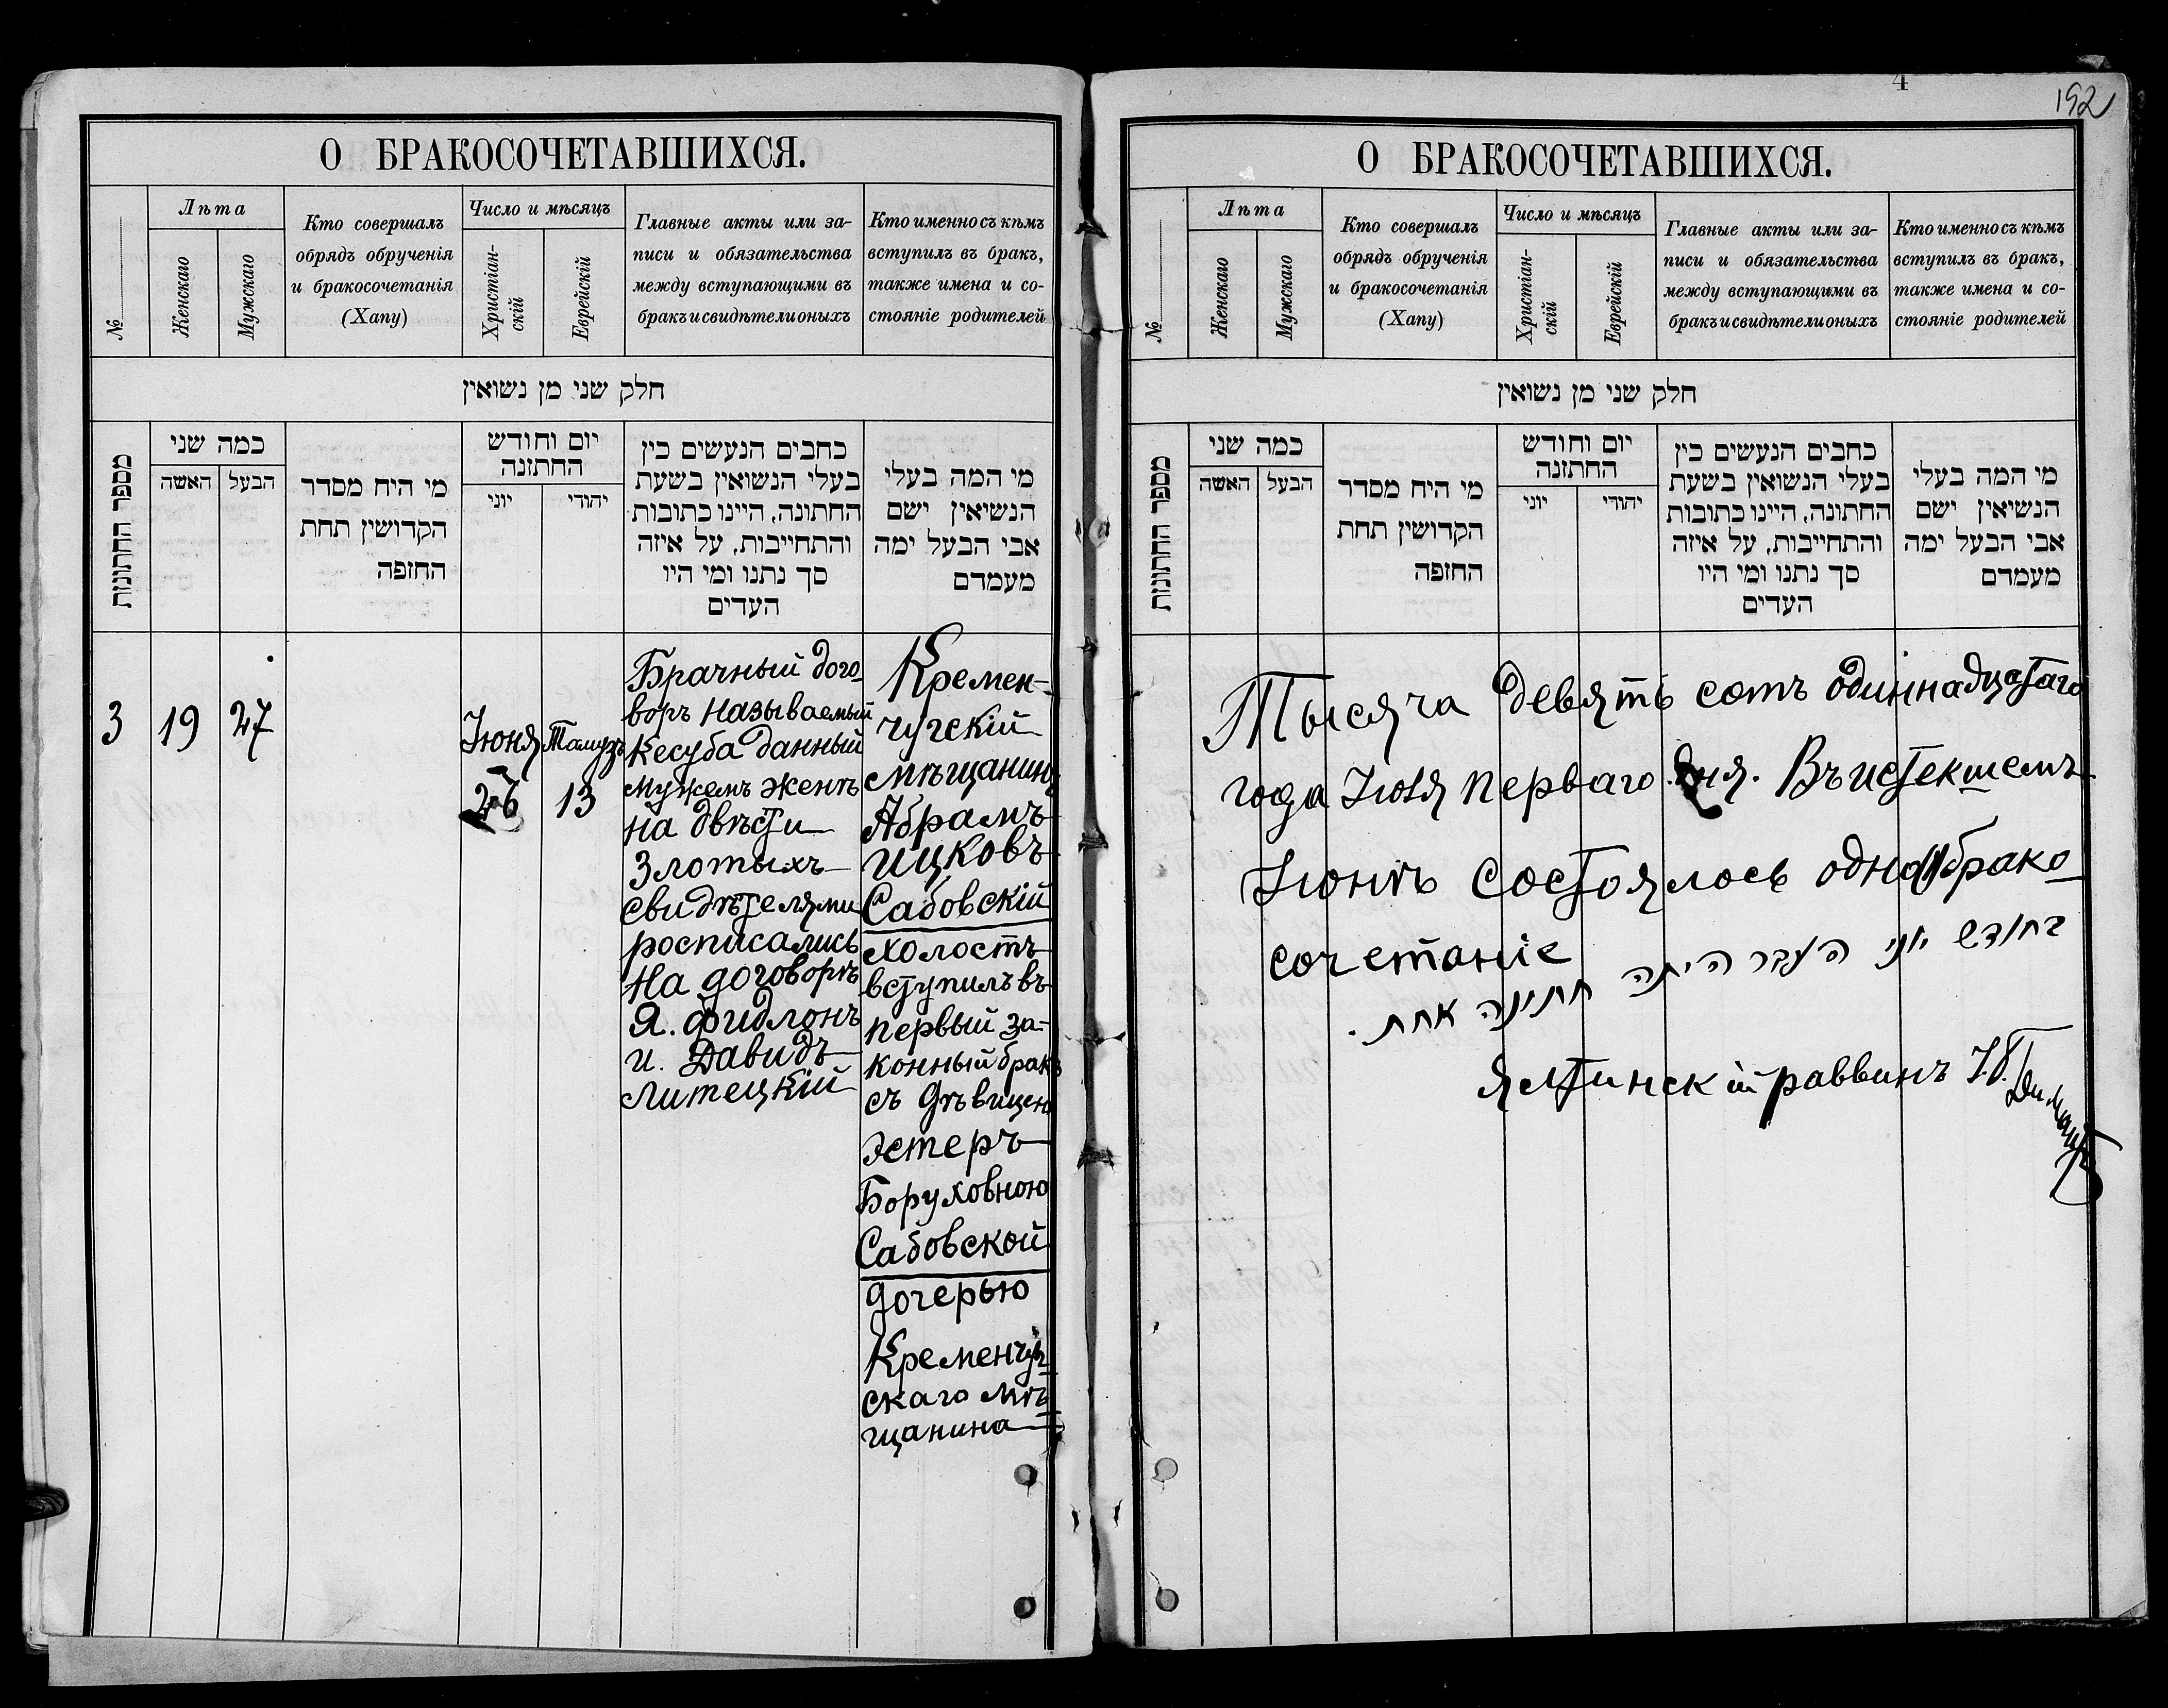 О БРАКОСОЧЕТАВШИХСЯ.
№
Лѣта
Женскаго
Мужскаго
Кто совершалъ
обрядъ обрученія
и бракосочетанія
(Хапу)
Число и мѣсяцъ
Христіан-
скій
Еврейскій
Главные акты или за-
писи и обязательства
между вступающими въ
бракъ и свидѣтели оныхъ
Кто именно съ кѣмъ
вступилъ въ бракъ,
также имена и со-
стояніе родителей
חלק שני מן נשואין
מספר החתונות
כמה שני
האשה
הבעל
מי היח מסדר
הקדושין תחת
החופה
יום וחודש
החתונה
יוני
יהודי
כחבים הנעשים כין
בעלי הנשואין בשעת
החתונה, היינו כתובות
והתחייבות, על איזה
סך נתנו ומי היו
העדים
מי המה בעלי
הנשיאין ישם
אבי הבעל ימה
מעמדם
3
19
27
Іюня
26
Тамузъ
13
Брачный дого-
воръ называемый
Кесуба данный
мужемъ женѣ
на двѣсти
злотыхъ
свидѣтелями
росписались
на договорѣ
Я. Фидлонъ
и. Давидъ
Литецкій
Кремен-
чугскій
мѣщанинъ
Абрамъ
Ицковъ
Сабовскій
холостъ
вступилъ въ
первый за-
конный бракъ
съ дѣвицею
Эстеръ
Боруховною
Сабовской
дочерью
Кременчуг-
скаго мѣ-
щанина
4
192
О БРАКОСОЧЕТАВШИХСЯ.
№
Лѣта
Женскаго
Мужскаго
Кто совершалъ
обрядъ обрученія
и бракосочетанія
(Хапу)
Число и мѣсяцъ
Христіан-
скій
Еврейскій
Главные акты или за-
писи и обязательства
между вступающими въ
бракъ и свидѣтели оныхъ
Кто именно съ кѣмъ
вступилъ въ бракъ,
также имена и со-
стояніе родителей
חלק שני מן נשואין
מספר החתונות
כמה שני
האשה
הבעל
מי היח מסדר
הקדושין תחת
החופה
יום וחודש
החתונה
יוני
יהודי
כחבים הנעשים כין
בעלי הנשואין בשעת
החתונה, היינו כתובות
והתחייבות, על איזה
סך נתנו ומי היו
העדים
מי המה בעלי
הנשיאין ישם
אבי הבעל ימה
מעמדם
Тысяча девять сотъ одиннадцатаго
года Іюля перваго дня. Въ истекшемъ
Іюнѣ состоялось одно брако-
сочетаніе
בחודש יוני העבר היתה חתונה אחת.
Ялтинскій раввинъ